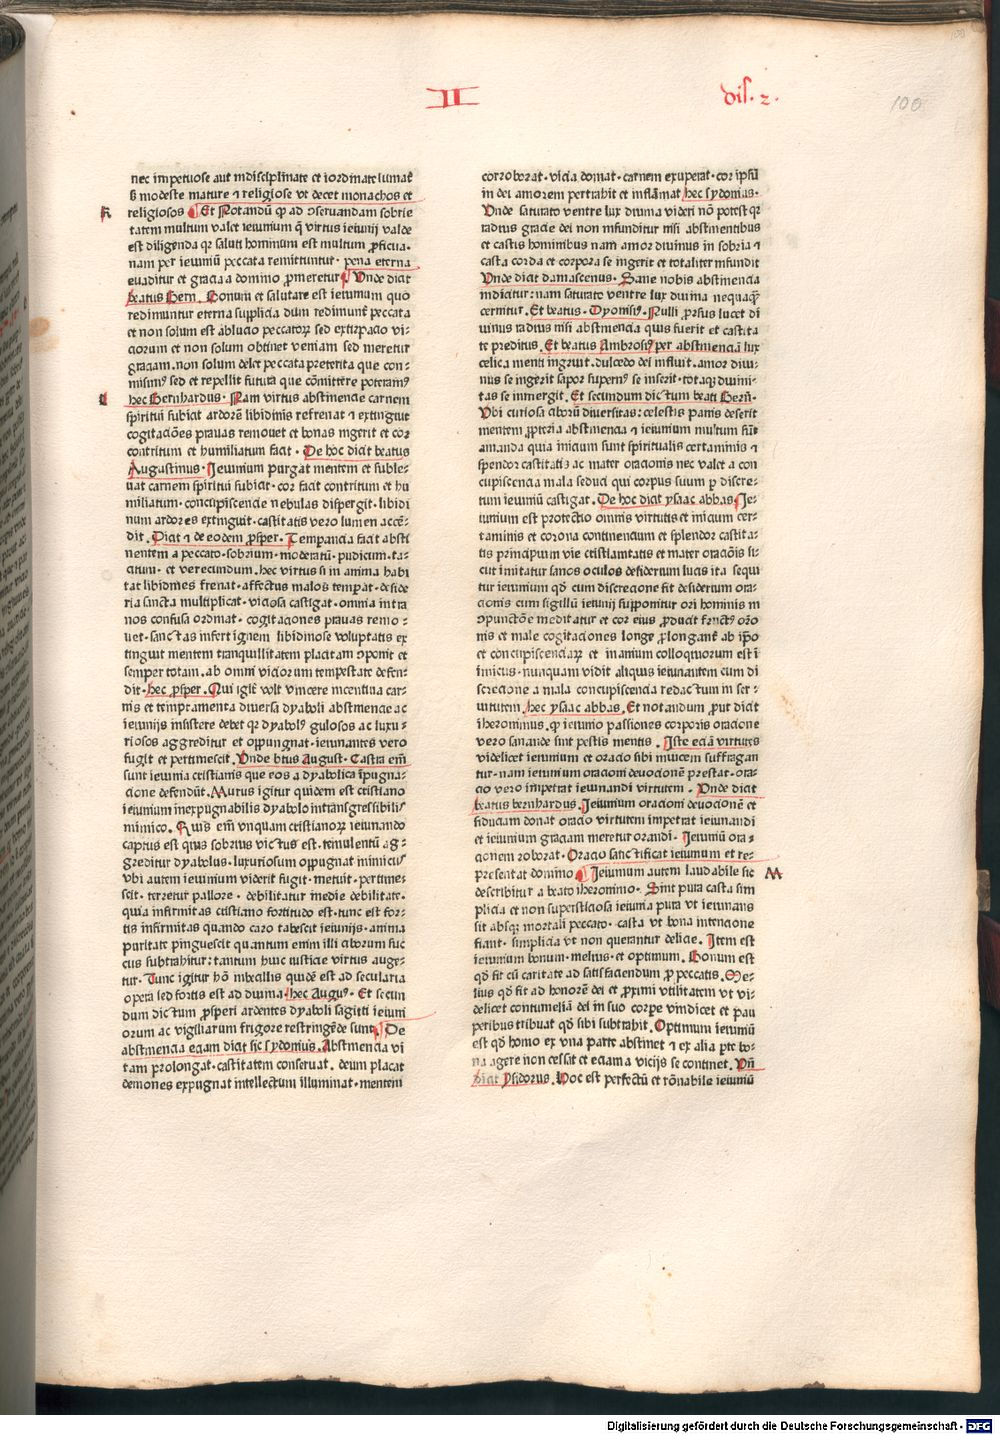 II
dis. 2.
100
nec impetuose aut indisciplinate et iordinate sumat̄
s̄ modeste mature ⁊ religiose vt decet monachos et
K
religiosos ¶ Et Notandū ꝙ ad ꝯseruandam sobrie
tatem multum valet ieiunium q̄ virtus ieiunij valde
est diligenda qꝛ saluti hominum est multum ꝓficua.
nam per ieiuniū peccata remittuntur. pena eterna
euaditur et gracia a domino ꝓmeretur ¶ Vnde dicit
beatus Bern. Bonum et salutare est ieiunium quo
redimuntur eterna suplicia dum redimunt̄ peccata
et non solum est ablucio peccatoꝝ sed extirpacio vi-
ciorum et non solum obtinet veniam sed meretur
graciam. non solum delet peccata preterita que con-
misimꝰ sed et repellit futura que cōmittere poteramꝰ
L
hec Bernhardus. Nam virtus abstinencie carnem
spiritui subicit ardorē libidinis refrenat ⁊ extinguit
cogitaciōes prauas remouet et bonas ingerit et cor
contritum et humiliatum facit. De hoc dicit beatus
Augustinus. Jeiunium purgat mentem et suble-
uat carnem spiritui subicit. cor facit contritum et hu
miliatum. concupiscencie nebulas dispergit. libidi
num ardores extinguit. castitatis vero lumen accē-
dit. Dicit ⁊ de eodem ꝓsper. Tempancia facit absti
nentem a peccato. sobrium. moderatū. pudicum. ta-
citum. et verecundum. hec virtus si in anima habi
tat libidines frenat. affectus malos temꝑat. deside
ria sancta multiplicat. viciosa castigat. omnia intra
nos confusa ordinat. cogitaciones prauas remo-
uet. sanctas infert ignem libidinose voluptatis ex
tinguit mentem tranquillitatem placitam ꝯponit et
semper totam. ab omni viciorum tempestate defen-
dit. hec ꝓsper. Qui igit̄ volt vincere incentiua car-
nis et temptamenta diuersa dyaboli abstinencie ac
ieiunijs insistere debet qꝛ dyabolꝰ gulosos ac luxu-
riosos aggreditur et oppungnat. ieiunantes vero
fugit et pertimescit. Vnde btūs August. Castra em̄
sunt ieiunia cristianis que eos a dyabolica īpugna-
cione defendūt. Murus igitur quidem est cristiano
ieiunium inexpugnabilis dyabolo intransgressibilis
inimico. Quis em̄ vnquam cristianoꝝ ieiunando
captus est quis sobrius victus est. temulentū ag-
greditur dyabolus. luxuriosum oppugnat inimicus
vbi autem ieiunium viderit fugit. metuit. pertime-
scit. terretur pallore. debilitatur inedie debilitate.
quia infirmitas cristiano fortitudo est. tunc est for-
tis infirmitas quando caro tabescit ieiunijs. anima
puritate pinguescit quantum enim illi ciborum suc
cus subtrahitur: tantum huic iusticie virtus auge-
tur. Tunc igitur hō imbecillis quidē est ad secularia
opera sed fortis est ad diuina. hec Augꝰ. Et secun
dum dictum ꝓsperi ardentes dyaboli sagitti ieiuni
orum ac vigiliarum frigore restringēde sunt ¶ De
abstinencia eciam dicit sic sydonius. Abstinencia vi
tam prolongat. castitatem conseruat. deum placat
demones expugnat intellectum illuminat. mentem
corroborat. vicia domat. carnem exuperat. cor ip̄su
in dei amorem pertrahit et inflāmat hec sydonius.
Vnde saturato ventre lux diuina videri nō potest qꝛ
radius gracie dei non infunditur nisi abstinentibus
et castis hominibus nam amor diuinus in sobria ⁊
casta corda et corpora se ingerit et totaliter infundit
Vnde dicit damascenus. Sane nobis abstinencia
indicitur: nam saturato ventre lux diuina nequaꝙ̄
cernitur. Et beatus. Dyonisꝰ. Nulli ꝓrsus lucet di
uinus radius nisi abstinencia quis fuerit et castita
te preditus. Et beatus Ambrosiꝰ per abstinenciā lux
celica menti ingruit. dulcedo dei influit. amor diui-
nus se ingerit sapor supernꝰ se inserit. totaqꝫ diuini-
tas se inmergit. Et secundum dictum beati Bern̄.
Vbi curiosa ciborū diuersitas: celestis panis deserit
mentem ꝓpterea abstinencia ⁊ ieiunium multum sūt
amanda quia inicium sunt spiritualis certaminis ⁊
spendor castitatis ac mater oracionis nec valet a con
cupiscencia mala seduci qui corpus suum ꝑ discre-
tum ieiuniū castigat. De hoc dicit ysaac abbas ¶ Je-
iunium est protectio omnis virtutis et inicium cer-
taminis et corona continencium et splendor castita-
tis principium vie cristianitatis et mater oraciōis si-
cut imitatur sanos oculos desiderium lucis ita sequi
tur ieiunium qd̄ cum discrecione fit desiderium ora-
cionis cum sigillū ieiunij supponitur ori hominis in
ꝯpunctōe meditatur et cor eius ꝓducit fructꝰ orō
nis et male cogitaciones longe ꝓlongant̄ ab ip̄o
et concupiscenciaꝝ et inanium colloquiorum est ī
imicus. nunquam vidit aliquis ieiunantem cum di
screcione a mala concupiscencia redactum in ser-
uitutem. hec ysaac abbas. Et notandum ꝓut dicit
iheronimus. ꝙ ieiunio passiones corporis oracione
vero sanande sunt pestis mentis. Iste eciā virtutes
videlicet ieiunium et oracio sibi inuicem suffragan
tur. nam ieiunium oracioni deuocionē prestat. ora-
cio vero impetrat ieiunandi virtutem. Vnde dicit
beatus bernhardus. Jeiunium oracioni deuocionē et
fiduciam donat oracio virtutem impetrat ieiunandi
et ieiunium graciam meretur orandi. Jeiuniū ora-
cionem roborat. Oracio sanctificat ieiunium et re-
M
presentat domino ¶ Jeiunium autem laudabile sic
describitur a beato iheronimo. Sint pura casta sim
plicia et non superstiosa ieiunia pura vt ieiunans
sit absqꝫ mortali peccato. casta vt bona intencione
fiant. simplicia vt non querantur delicie. Item est
ieiunium bonum. melius. et optimum. Bonum est
qd̄ fit cū caritate ad satisfaciendum ꝓ peccatis. Me-
lius qd̄ fit ad honorē dei et ꝓximi vtilitatem vt vi-
delicet contumeliā dei in suo corpe vindicet et pau
peribus tribuat qd̄ sibi subtrahit. Optimum ieiuniū
est qd̄ homo ex vna parte abstinet ⁊ ex alia ꝑte bo-
na agere non cessat et eciam a vicijs se continet. Vn̄
dicit Ysidorus. Hoc est perfectū et rōnabile ieiuniū
Digitalisierung gefördert durch die Deutsche Forschungsgemeinschaft - DFG